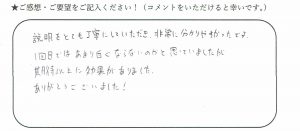 ★ご感想・ご要望をご記入ください！（コメントをいただけると幸いです。）
説明をとても丁寧にしていただき、非常に分かりやすかったです。
1回目ではあまり白くならないのかと思っていましたが
期待以上に効果がありました。
ありがとうございました！